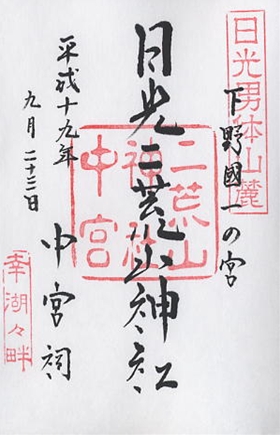 日光男体山麓
下野國一の宮
日光二荒山神社
二荒山
神社
中宮
中宮祠
平成十九年
九月二十三日
幸湖々畔